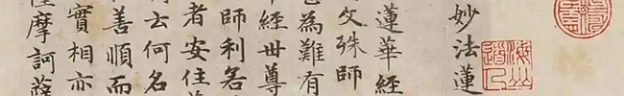 妙法蓮
蓮華經
文殊師
為難有
經世尊
師利若
者安住
云何名
善順而
實相亦
摩訶薩